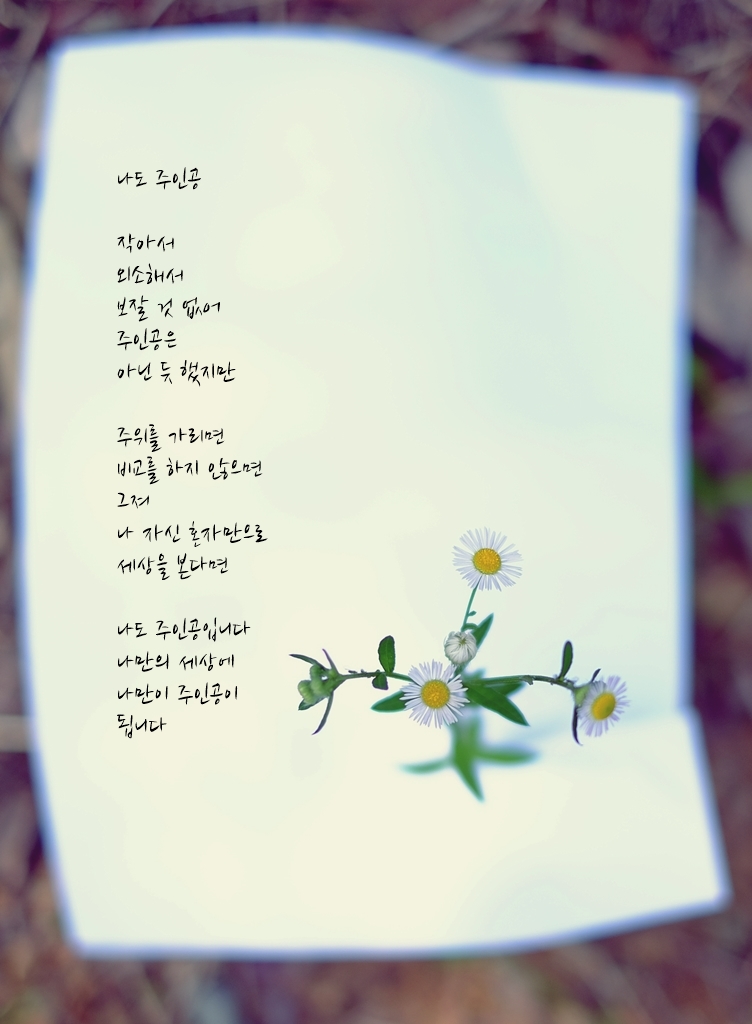 나도 주인공
작아서
외소해서
보잘 것 없어
주인공은
아닌 듯 했지만
주위를 가리면
비교를 하지 않으면
그저
나 자신 혼자만으로
세상을 본다면
나도 주인공입니다
나만의 세상에
나만이 주인공이
됩니다